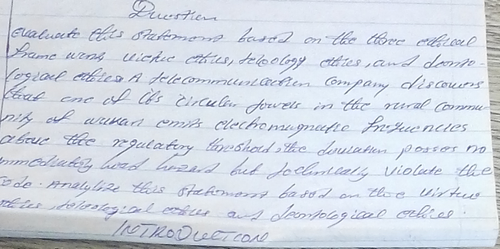 Question
evaluate this statement based on the three ethical
frame work virtue ethics, teleology ethics, and deonto-
logical ethics. A telecommunication company discovers
that one of its circular towers in the rural commu-
nity of emits electromagnetic frequencies
above the regulatory threshold. the posses no
immediately hazard but technically violate the
code. Analyze this statement based on the virtue
ethics, teleological ethics and deontological ethics.
INTRODUCTION